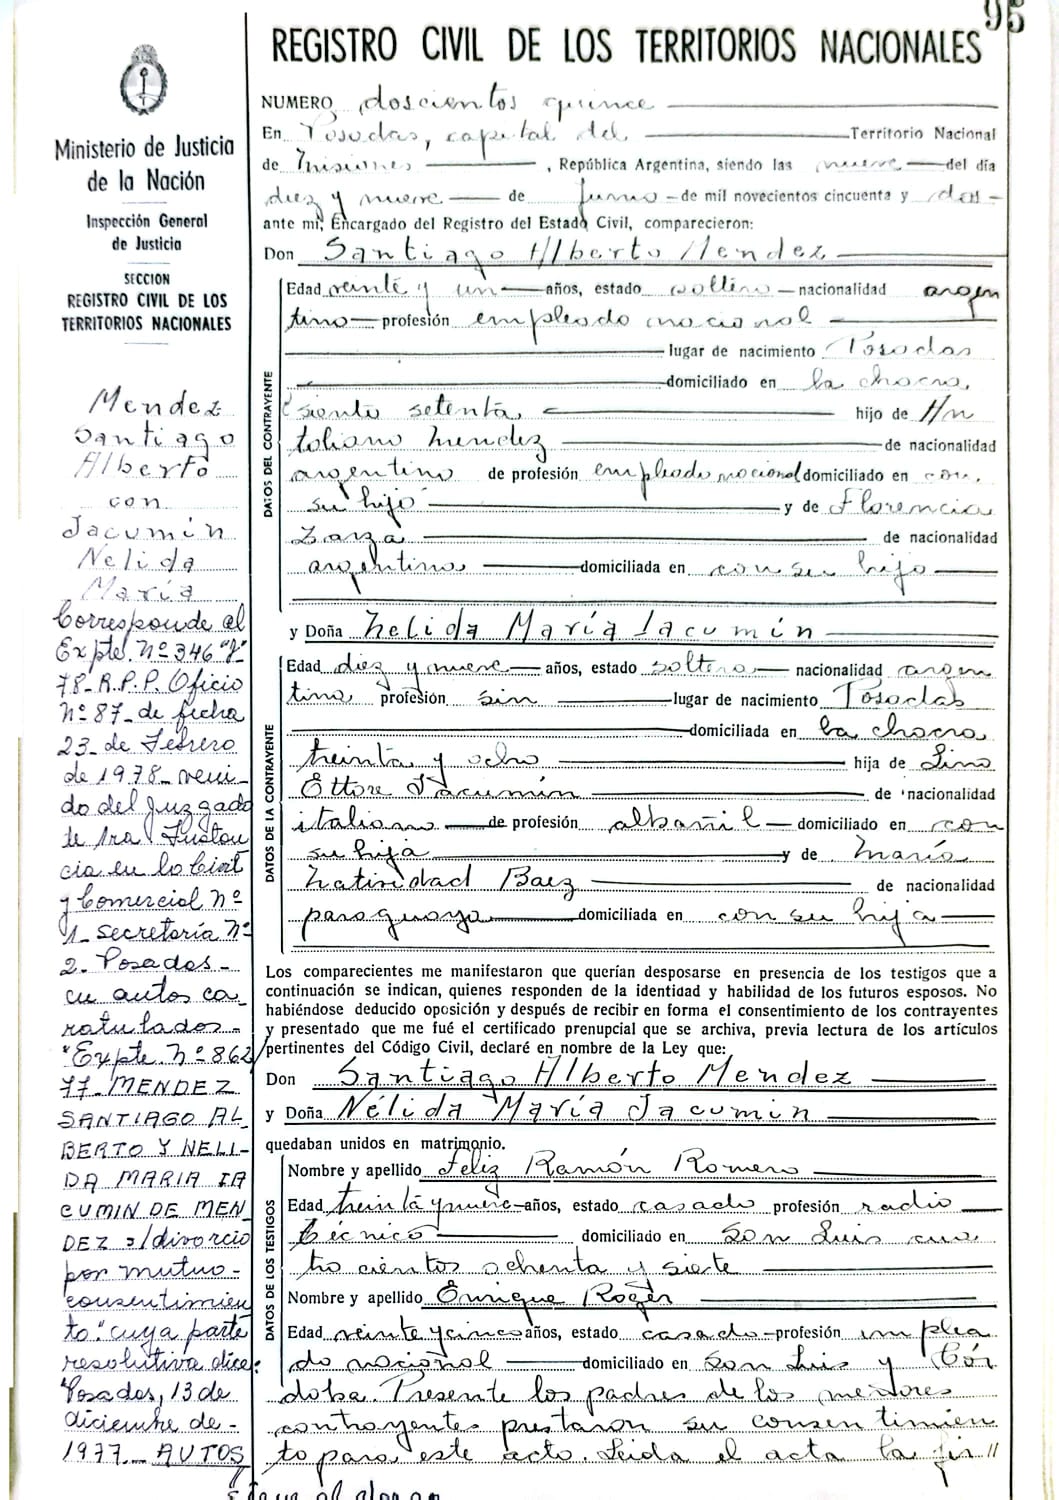 95
REGISTRO CIVIL DE LOS TERRITORIOS NACIONALES
Ministerio de Justicia
de la Nación
Inspección General
de Justicia
SECCION
REGISTRO CIVIL DE LOS
TERRITORIOS NACIONALES
Mendez
Santiago
Alberto
con
Jacumín
Nelida
María
Corresponde al
Expte. Nº 346 "J"
78-R.P.P. Oficio
Nº 87- de fecha
23- de Febrero
de 1978- veni-
do del Juzgado
de 1ra Instan
cia en lo Civil
y Comercial Nº
1- secretaría Nº
2- Posadas-
en autos ca_
ratulados-
"Expte. Nº 862/
77- MENDEZ
SANTIAGO AL_
BERTO Y NELI-
DA MARIA IA
CUMIN DE MEN_
DEZ s/divorcio
por mutuo-
consentimien
to" cuya parte
resolutiva dice:
"Posadas, 13 de
diciembre de-
1977.- AUTOS
NUMERO doscientos quince
En Posadas, capital del Territorio Nacional
de Misiones, República Argentina, siendo las nueve del día
diez y nueve de Junio de mil novecientos cincuenta y dos
ante mi, Encargado del Registro del Estado Civil, comparecieron:
Don Santiago Alberto Mendez
DATOS DEL CONTRAYENTE
Edad veinte y un años, estado soltero nacionalidad argen
tino profesión empleado nacional
lugar de nacimiento Posadas
domiciliado en la chacra
siento setenta hijo de An
toliano Mendez de nacionalidad
argentino de profesión empleado nacional domiciliado en con
su hijo y de Florencia
Zarza de nacionalidad
argentina domiciliada en con su hijo
y Doña Nelida María Jacumín
DATOS DE LA CONTRAYENTE
Edad diez y nueve años, estado soltera nacionalidad argen
tina profesión sin lugar de nacimiento Posadas
domiciliada en la chacra
treinta y ocho hija de Lino
Ettore Jacumín de nacionalidad
italiano de profesión albañil domiciliado en con
su hija y de María
Natividad Baez de nacionalidad
paraguaya domiciliada en con su hija
Los comparecientes me manifestaron que querían desposarse en presencia de los testigos que a
continuación se indican, quienes responden de la identidad y habilidad de los futuros esposos. No
habiéndose deducido oposición y después de recibir en forma el consentimiento de los contrayentes
y presentado que me fué el certificado prenupcial que se archiva, previa lectura de los artículos
pertinentes del Código Civil, declaré en nombre de la Ley que:
Don Santiago Alberto Mendez
y Doña Nélida María Jacumin
quedaban unidos en matrimonio.
DATOS DE LOS TESTIGOS
Nombre y apellido Feliz Ramón Romero
Edad treinta y nueve años, estado casado profesión radio
técnico domiciliado en San Luis cua
tro cientos ochenta y siete
Nombre y apellido Enrique Roger
Edad veinte y cinco años, estado casado profesión emplea
do nacional domiciliado en San Luis y Cór
doba. Presente los padres de los menores
contrayentes prestaron su consentimien
to para este acto. Leida el acta la fir//